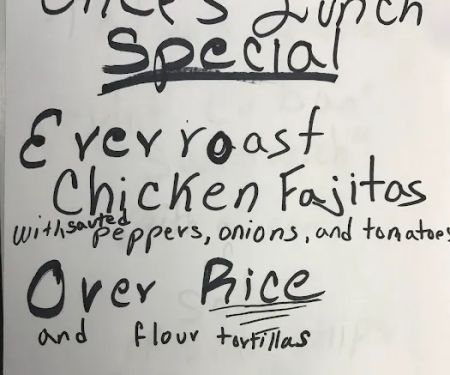 Lunch
Special
Everroast
Chicken Fajitas
with sauted peppers, onions, and tomatoes
Over Rice
and flour tortillas